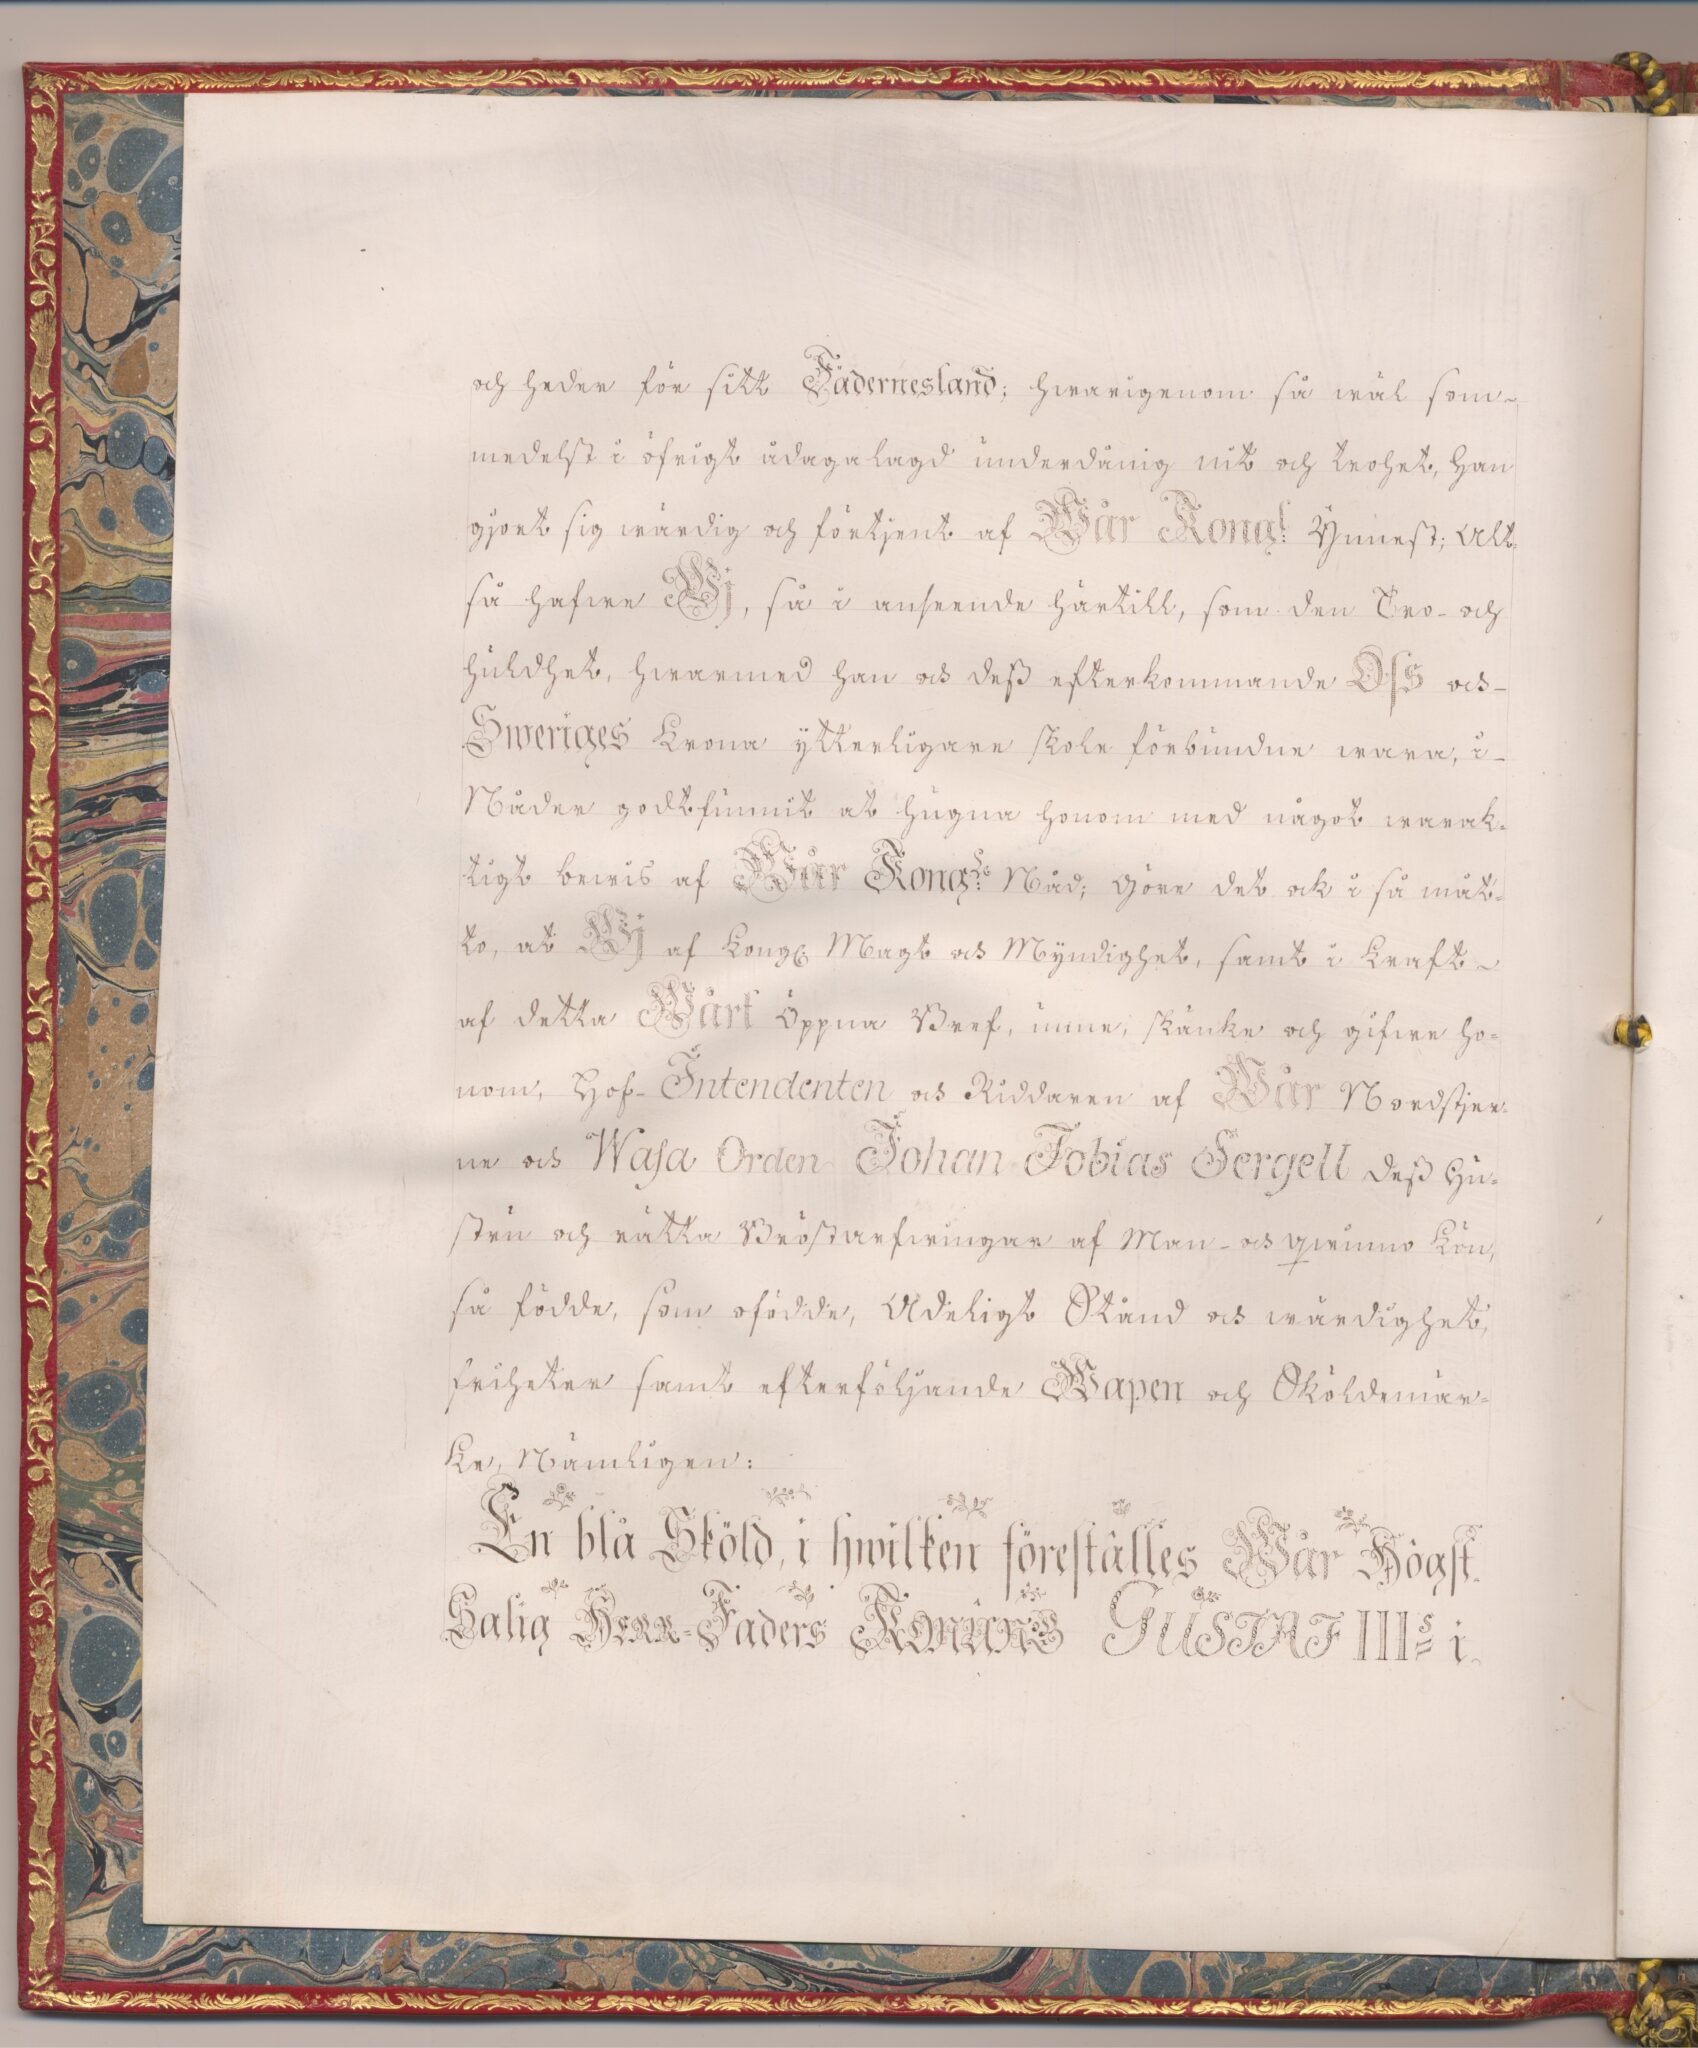 och heder för sitt Fädernesland; hwarigenom så wäl som
medelst i öfrigt ådagalagd underdånig nit och trohet, Han
gjort sig wärdig och förtjent af Wår Kongl. Ynnest; Alt-
så hafwe Wj, så i anseende härtill, som den Tro- och
huldhet, hwarmed han och dess efterkommande Oss och
Sweriges Krona ytterligare skole förbundne wara, i
Nåder godtfunnit at hugna honom med något warak-
tigt bewis af Wår Kongl. Nåd; Göre det ock i så måt-
to, at Wj af Kongl. Magt och Myndighet, samt i Kraft
af detta Wårt Öppna Bref, unne, skänke och gifwe ho-
nom, Hof-Intendenten och Riddaren af Wår Nordstjer-
ne och Wasa Orden Johan Tobias Sergell dess Hu-
stru och rätta Bröstarfwingar af Man- och qwinno Kön,
så födde, som ofödde, Adeligt Stånd och wärdighet,
friheter samt efterföljande Wapen och Sköldemär-
ke, Nämligen:
En blå Sköld, i hwilken föreställes Wår Högst
Salig Herr-Faders Konung GUSTAF III:s i